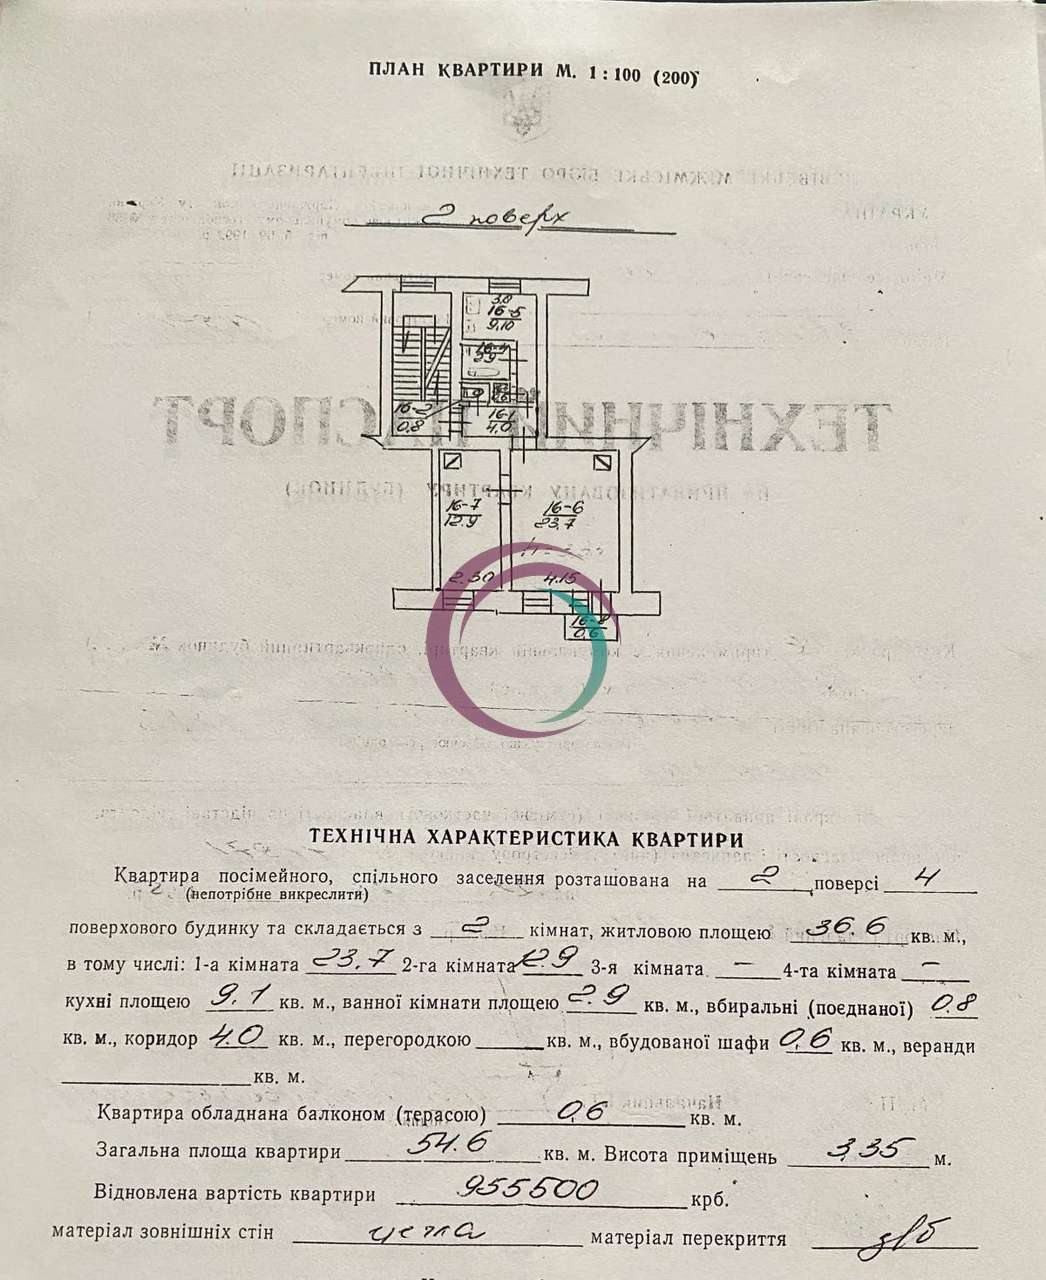 ПЛАН КВАРТИРИ М. 1 : 100 (200)
2 поверх
3.8
16-5
9.10
16-4
2.9
16-2
0.8
16-1
4.0
16-7
12.9
16-6
23.7
2.30
4.15
0.6
ТЕХНІЧНИЙ ПАСПОРТ
ТЕХНІЧНА ХАРАКТЕРИСТИКА КВАРТИРИ
Квартира посімейного, спільного заселення розташована на 2 поверсі 4
(непотрібне викреслити)
поверхового будинку та складається з 2 кімнат, житловою площею 36.6 кв. м.,
в тому числі: 1-а кімната 23,7 2-га кімната 12.9 3-я кімната — 4-та кімната —
кухні площею 9.1 кв. м., ванної кімнати площею 2.9 кв. м., вбиральні (поєднаної) 0.8
кв. м., коридор 4.0 кв. м., перегородкою кв. м., вбудованої шафи 0,6 кв. м., веранди
кв. м.
Квартира обладнана балконом (терасою) 0,6 кв. м.
Загальна площа квартири 54.6 кв. м. Висота приміщень 3,35 м.
Відновлена вартість квартири 955500 крб.
матеріал зовнішніх стін цегла матеріал перекриття з/б